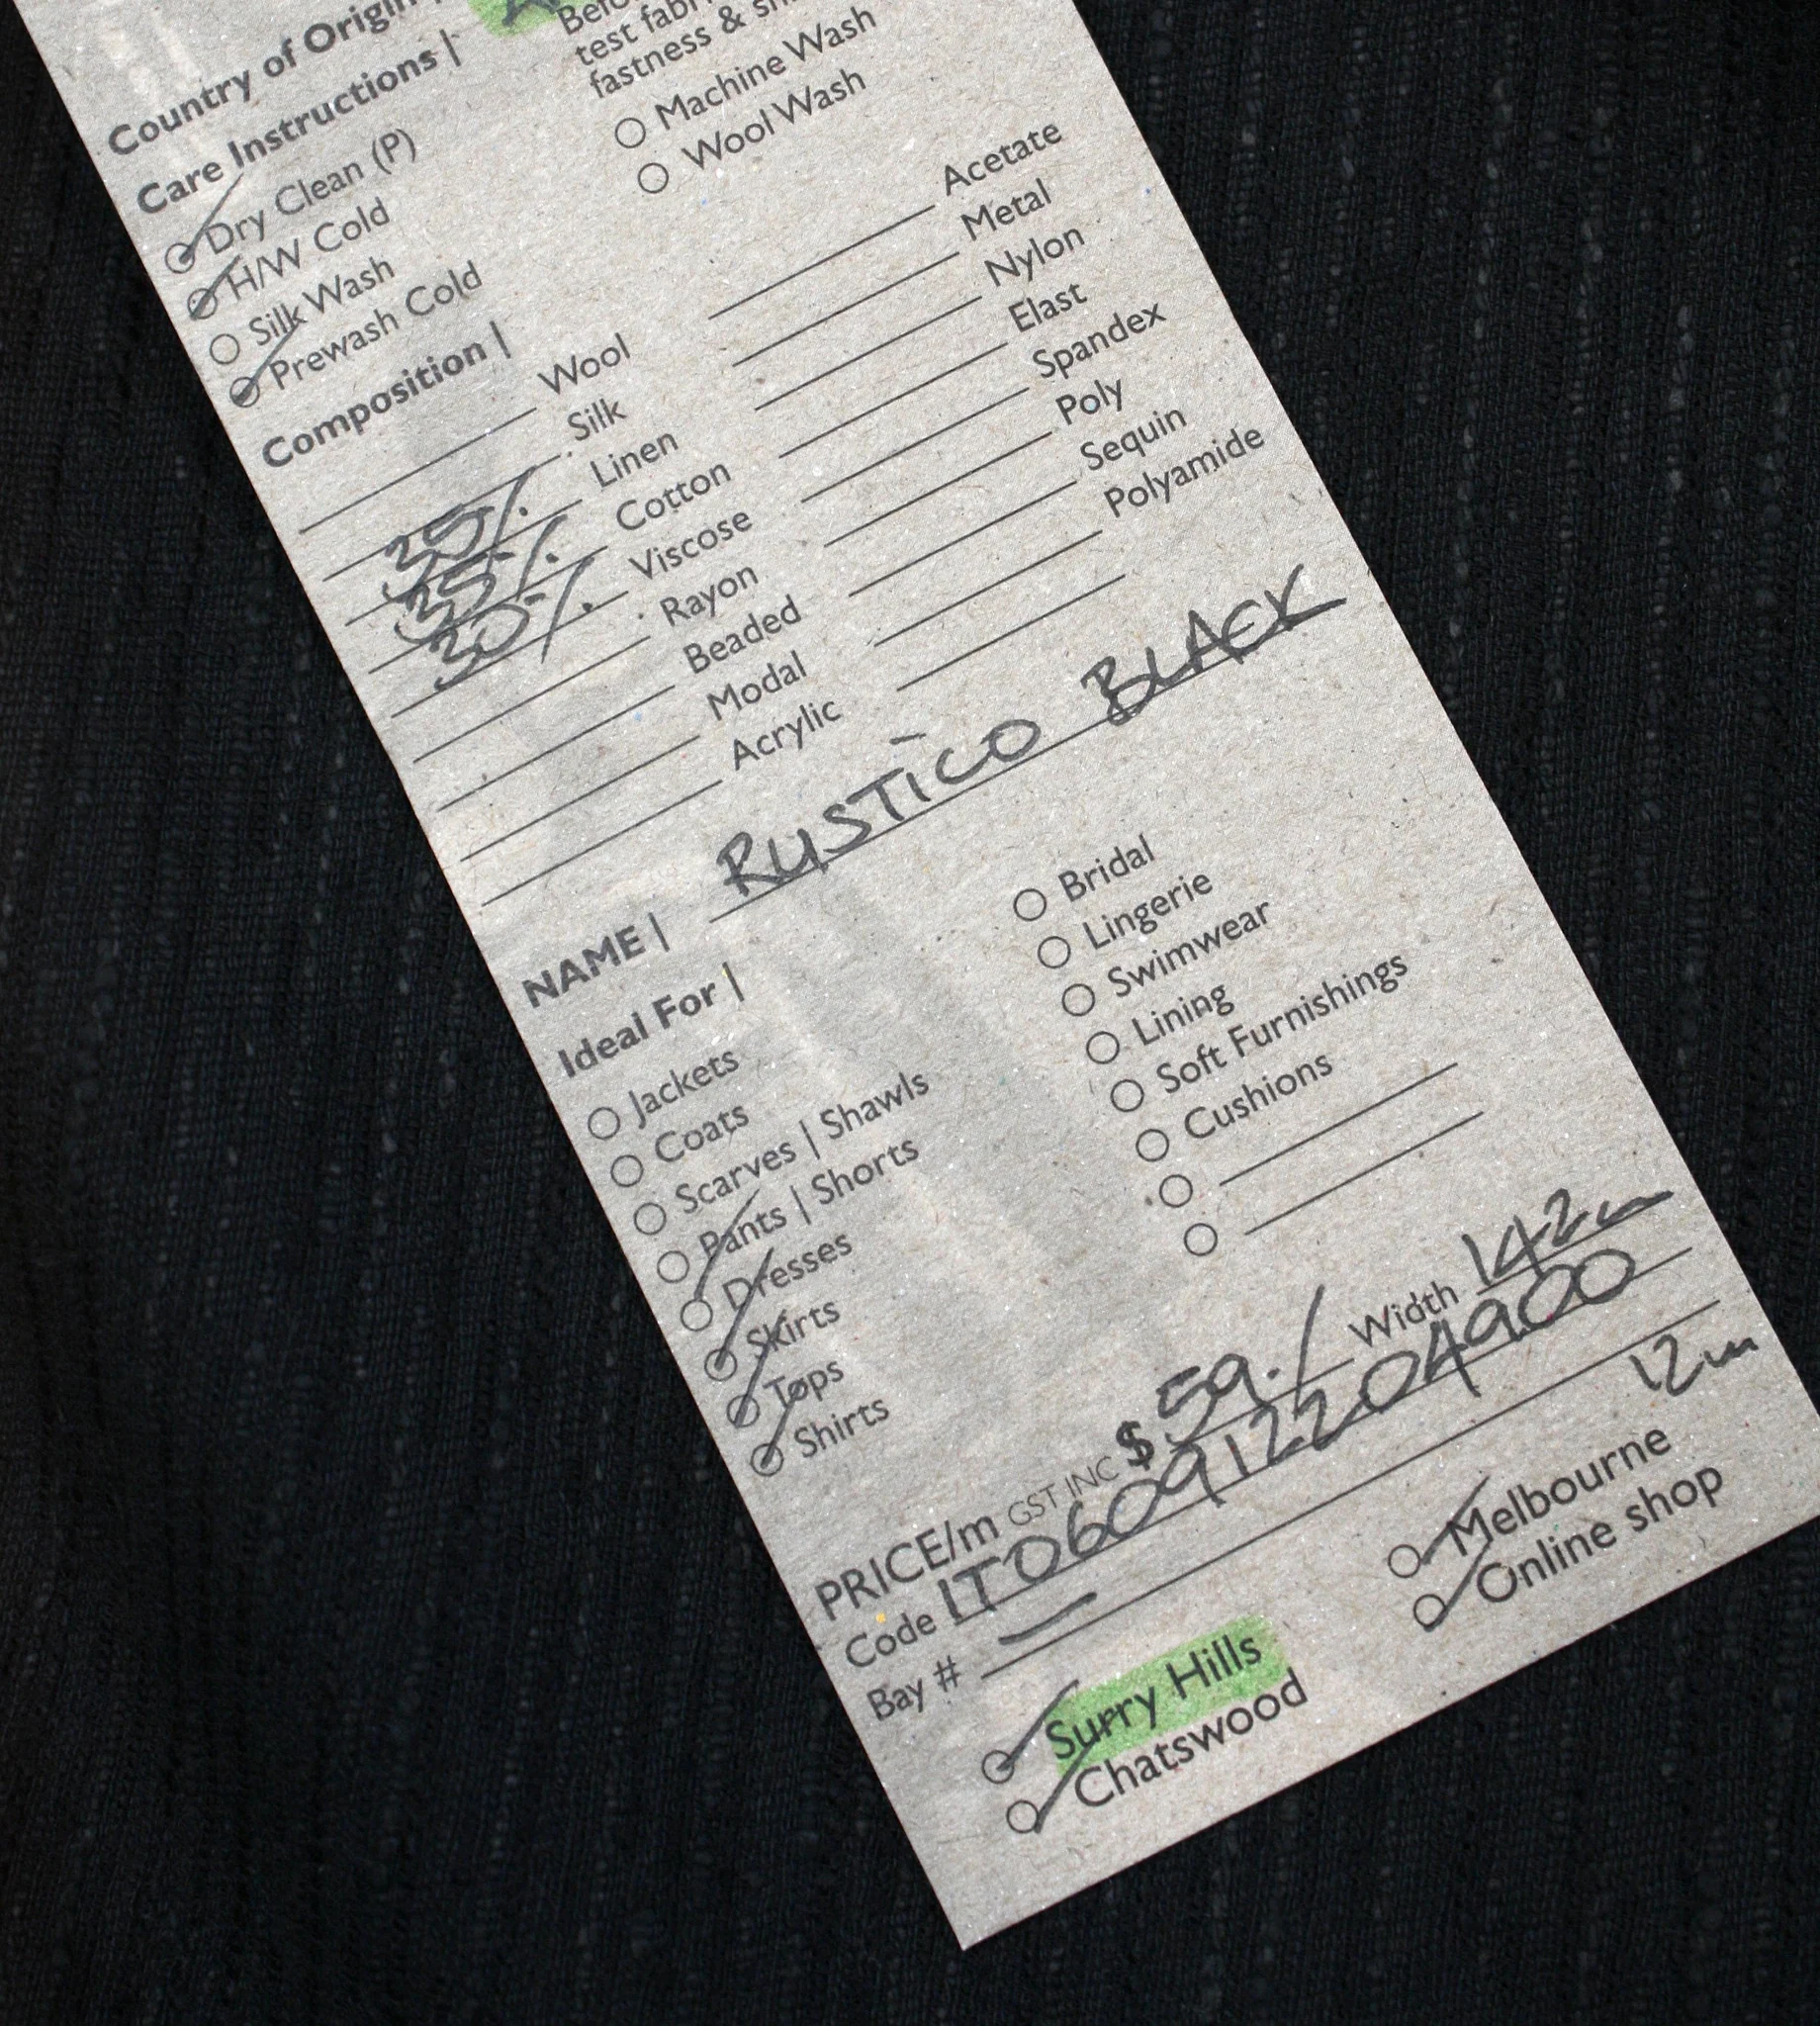 Country of Origin |
Care Instructions |
test
fastness &
Dry Clean (P)
H/W Cold
Silk Wash
Prewash Cold
Machine Wash
Wool Wash
Composition |
Wool
Silk
35% Linen
35% Cotton
30% Viscose
Rayon
Beaded
Modal
Acrylic
Acetate
Metal
Nylon
Elast
Spandex
Poly
Sequin
Polyamide
NAME | RUSTICO BLACK
Ideal For |
Jackets
Coats
Scarves | Shawls
Pants | Shorts
Dresses
Skirts
Tops
Shirts
Bridal
Lingerie
Swimwear
Lining
Soft Furnishings
Cushions
PRICE/m GST INC $ 59./ Width 142cm
Code IT0609122204900
Bay # — 12m
Surry Hills
Chatswood
Melbourne
Online shop